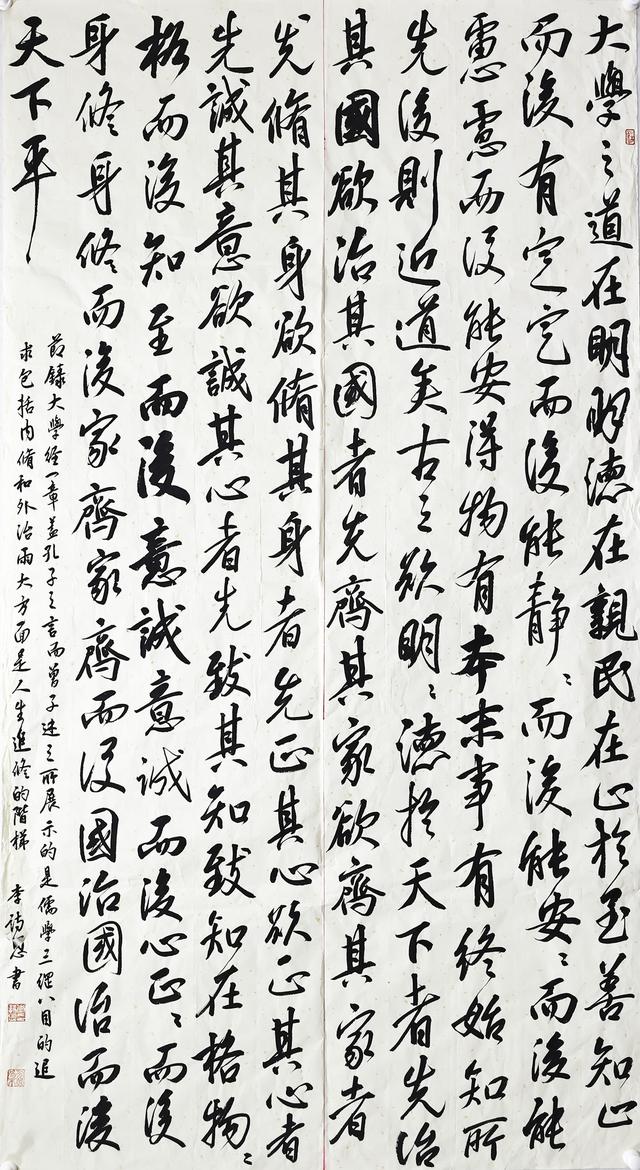 大學之道在明明德在親民在止於至善知止
而後有定定而後能靜〻而後能安〻而後能
慮慮而後能安得物有本末事有終始知所
先後則近道矣古之欲明〻德於天下者先治
其國欲治其國者先齊其家欲齊其家者
先脩其身欲脩其身者先正其心欲正其心者
先誠其意欲誠其心者先致其知致知在格物〻
格而後知至而後意誠意誠而後心正〻而後
身修身修而後家齊家齊而後國治國治而後
天下平
節錄大學經一章蓋孔子之言而曾子述之所展示的是儒學三綱八目的追
求包括内脩和外治兩大方面是人生進修的階梯 李詩書